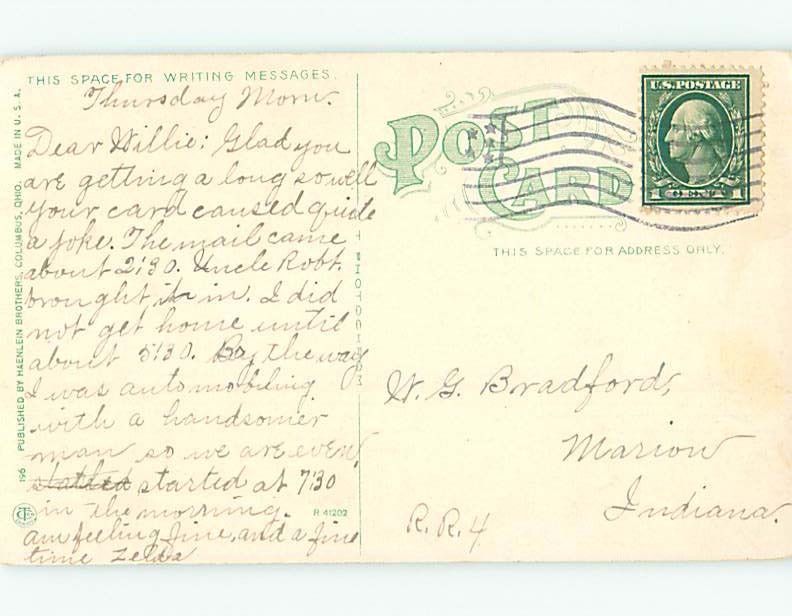 THIS SPACE FOR WRITING MESSAGES.
Thursday Morn.
Dear Willie: Glad you
are getting a long so well
your card caused quite
a joke. The mail came
about 2:30. Uncle Robt.
brought it in. I did
not get home until
about 5:30. By the way
I was automobiling
with a handsomer
man so we are even
started started at 7:30
in the morning.
am feeling fine, and a fine
time Zelda
R 41202
196 PUBLISHED BY HAENLEIN BROTHERS, COLUMBUS, OHIO. MADE IN U. S. A.
POST
CARD
U.S. POSTAGE
1 CENT 1
THIS SPACE FOR ADDRESS ONLY.
W. G. Bradford,
Marion
Indiana.
R.R. 4